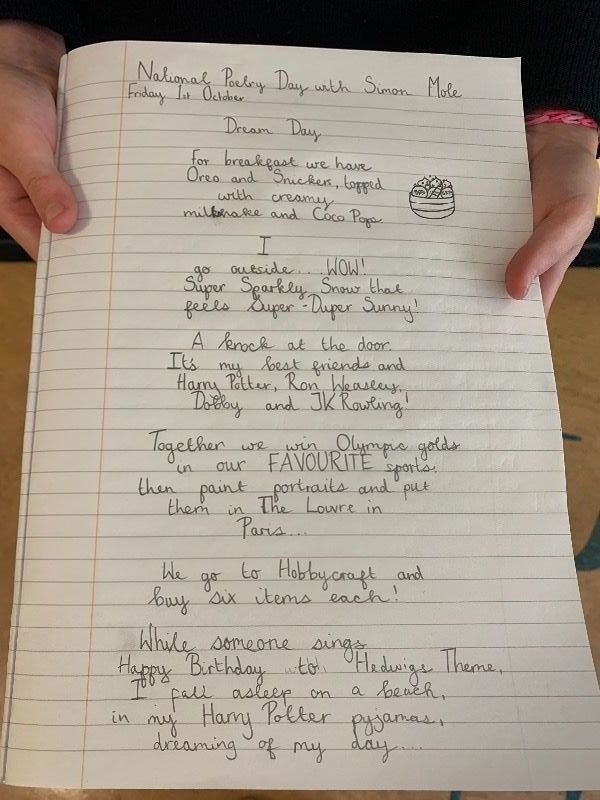 National Poetry Day with Simon Mole
Friday 1st October
Dream Day
For breakfast we have
Oreo and Snickers, topped
with creamy
milkshake and Coco Pops
I
go outside.... WOW!
Super Sparkly Snow that
feels Super-Duper Sunny!
A knock at the door
It's my best friends and
Harry Potter, Ron Weasley,
Dobby and JK Rowling!
Together we win Olympic golds
in our FAVOURITE sports,
then paint portraits and put
them in The Louvre in
Paris...
We go to Hobbycraft and
buy six items each!
While someone sings
Happy Birthday to Hedwigs Theme,
I fall asleep on a beach,
in my Harry Potter pyjamas,
dreaming of my day....